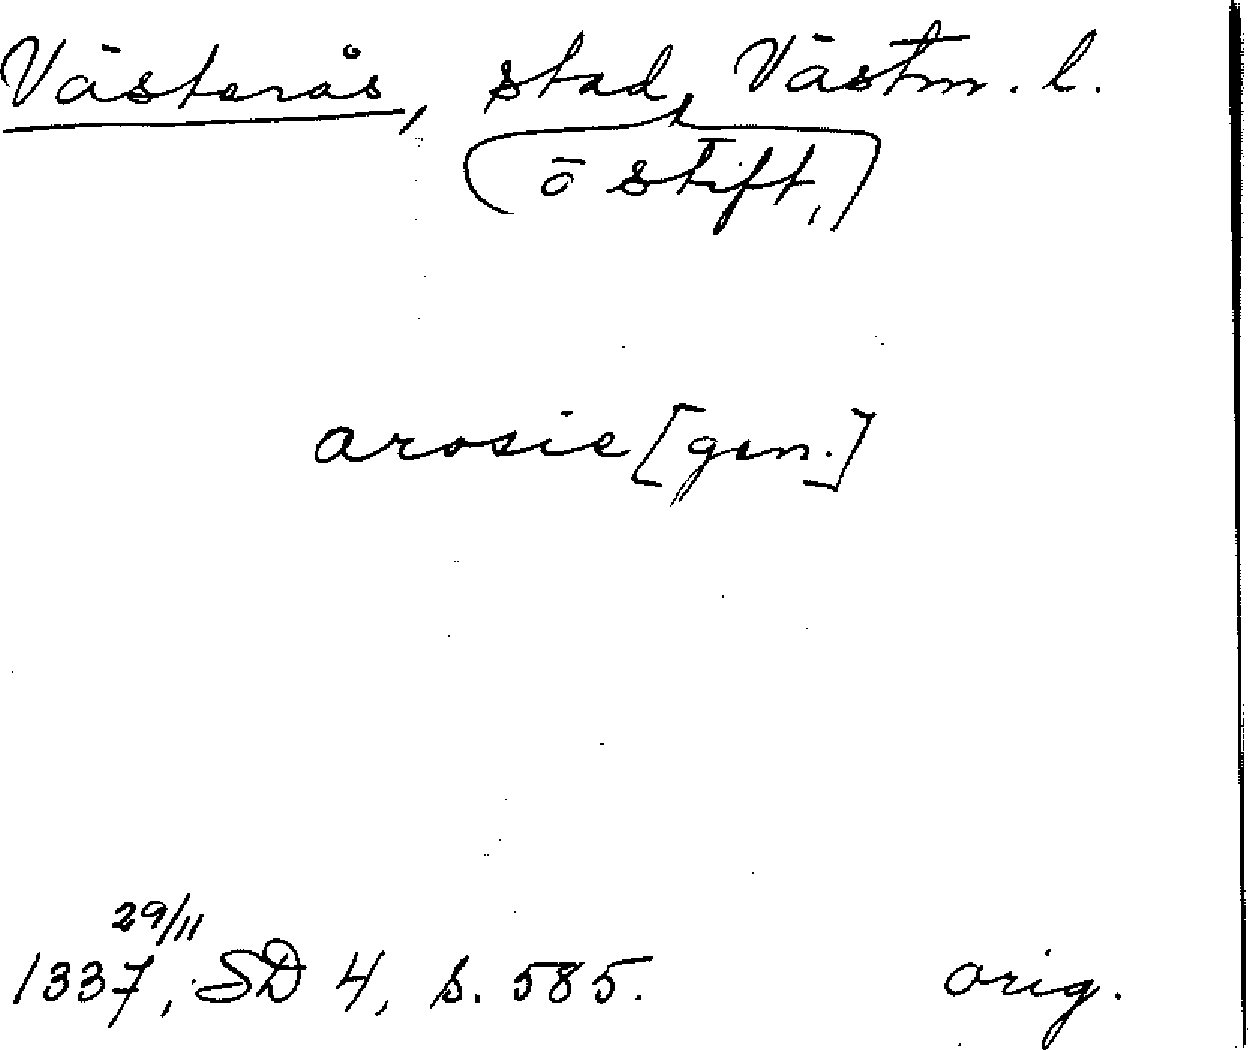 Västerås, stad, Västm. l.
(ō stift,)
arosie [gen.]
29/11
1337, SD 4, s. 585. orig.